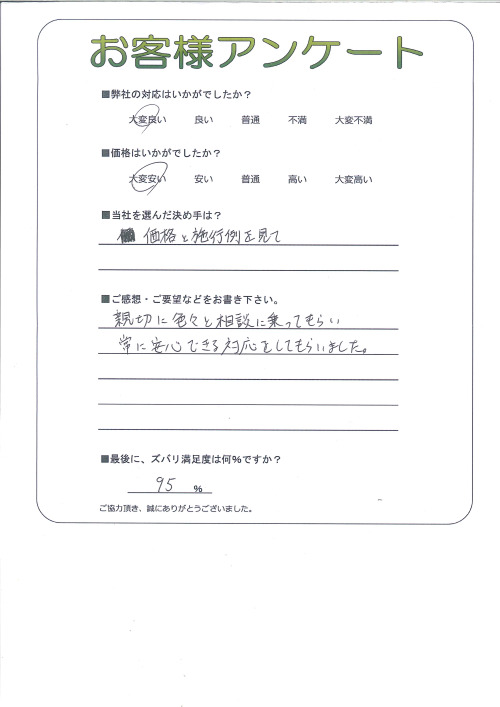 お客様アンケート
■弊社の対応はいかがでしたか？
大変良い 良い 普通 不満 大変不満
■価格はいかがでしたか？
大変安い 安い 普通 高い 大変高い
■当社を選んだ決め手は？
価格と施行例を見て
■ご感想・ご要望などをお書き下さい。
親切に色々と相談に乗ってもらい
常に安心できる対応をしてもらいました。
■最後に、ズバリ満足度は何%ですか？
95 %
ご協力頂き、誠にありがとうございました。